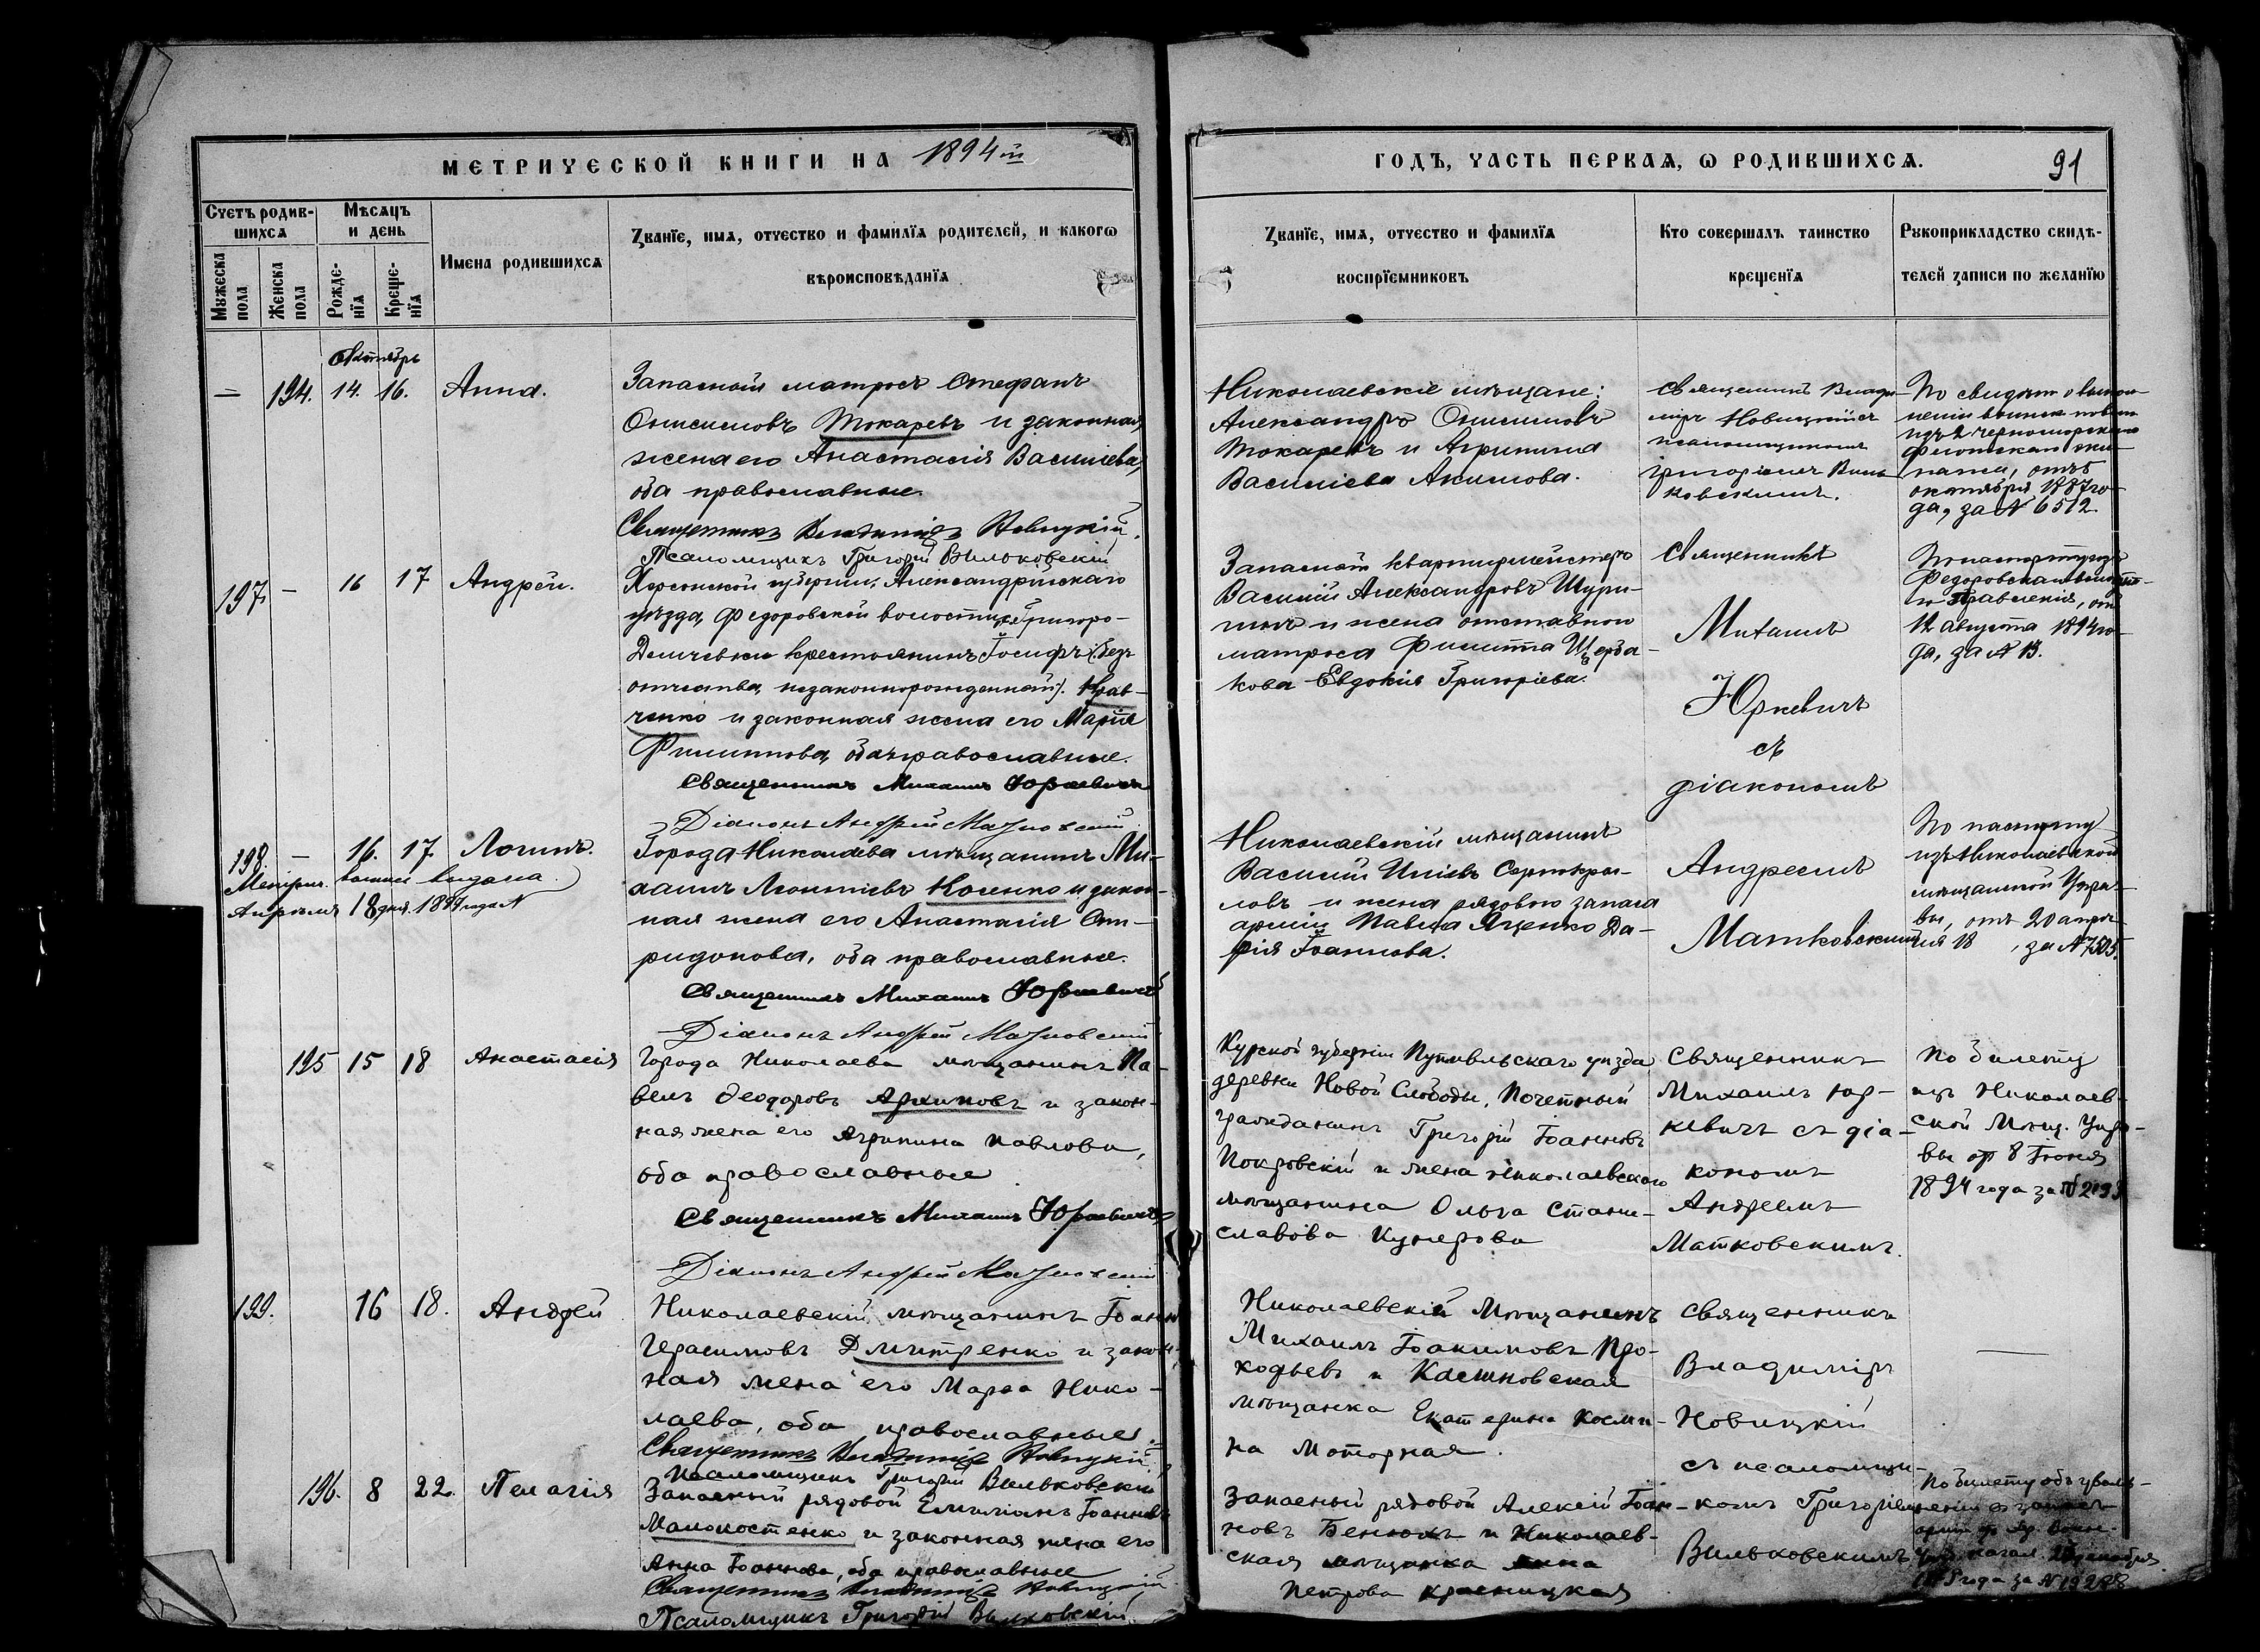 МЕТРИЧЕСКОЙ КНИГИ НА 1894 й
ГОДЪ, ЧАСТЬ ПЕРВАЯ, Ѡ РОДИВШИХСЯ.
91
Счетъ родив-
шихся
Мужеска
пола
Женска
пола
Мѣсяцъ
и день
Рожде-
нїя
Креще-
нїя
Имена родившихся
Званїе, имя, отчество и фамилїя родителей, и какогѡ
вѣроисповѣданїя
Званїе, имя, отчество и фамилїя
воспрїемниковъ
Кто совершалъ таинство
крещенїя
Рукоприкладство свидѣ-
телей записи по желанїю
Октябрь
— 194. 14. 16. Анна.
Запасный матросъ Стефанъ
Онисимовъ Токаревъ и законная
жена его Анастасія Василіева,
оба православные.
Священникъ Владиміръ Новицкій.
Псаломщикъ Григорій Вильковскій
Николаевскіе мѣщане:
Александръ Онисимовъ
Токаревъ и Агрипина
Василіева Акимова.
Священникъ Влади-
міръ Новицкій съ
псаломщикомъ
Григоріемъ Виль-
ковскимъ.
По свидѣт. о выпол-
неніи воинск. повин.
изъ 2 черноморскаго
флотскаго эки-
пажа, отъ 5
октября 1887 го-
да, за № 6512.
197. — 16 17 Андрей.
Херсонской губерніи, Александрійскаго
уѣзда, Федоровской волости, с. Григоро-
Денисевки крестьянинъ Іосифъ (безъ
отчества, незаконнорожденный). Крав-
ченко и законная жена его Марія
Филиппова, оба православные.
Священникъ Михаилъ Юркевичъ
Діаконъ Андрей Матковскій
Запасный квартирмейстеръ
Василій Александровъ Шури-
гинъ и жена отставного
матроса Филиппа Щерба-
кова Евдокія Григоріева.
Священникъ
Михаилъ
Юркевичъ
съ
діакономъ
Андреемъ
Матковскимъ
По паспорту изъ
Федоровскаго волостно-
го Правленія, отъ
12 августа 1894 го-
да, за № 13.
198. — 16. 17 Логинъ.
Метрич. выпись выдана
Апрѣля 18 дня 1899 года №
Города Николаева мѣщанинъ Ми-
хаилъ Леонтіевъ Косенко и закон-
ная жена его Анастасія Спи-
ридонова, оба православные.
Священникъ Михаилъ Юркевичъ
Діаконъ Андрей Матковскій
Николаевскій мѣщанинъ
Василій Иліевъ
ловъ и жена рядового запаса
арміи Павла Яценко Да-
рія Іоаннова.
По паспорту
изъ Николаевской
мѣщанской Упра-
вы, отъ 20 апрѣ-
ля 18 , за № 7505.
195 15 18 Анастасія
Города Николаева мѣщанинъ Па-
велъ Ѳеодоровъ Архиповъ и закон-
ная жена его Агрипина Павлова,
оба православные
Священникъ Михаилъ Юркевичъ
Діаконъ Андрей Матковскій
Курской губерніи Путивльскаго уѣзда,
деревни Новой Слободы, Почетный
гражданинъ Григорій Іоанновъ
Покровскій и жена николаевскаго
мѣщанина Ольга Стани-
славова Кучерова
Священникъ
Михаилъ Юр-
кевичъ съ діа-
кономъ
Андреемъ
Матковскимъ.
По билету
изъ Николаев-
ской Мѣщ. Упра-
вы от 8 Іюня
1894 года за №
199. 16 18. Андрей
Николаевскій мѣщанинъ Іоаннъ
Герасимовъ Дмитренко и закон-
ная жена его Марѳа Нико-
лаева, оба православные.
Священникъ Владиміръ Новицкій
Псаломщикъ Григорій Вильковскій
Николаевскій Мѣщанинъ
Михаилъ Іоакимовъ Про-
кофьевъ и
мѣщанка Екатерина Косми-
на Моторная.
Священникъ
Владиміръ
Новицкій
съ псаломщи-
комъ Григоріемъ
Вильковскимъ
—
196. 8 22. Пелагія
Запасный рядовой Емиліанъ Іоанновъ
Малокостенко и законная жена его
Анна Іоаннова, оба православные
Священникъ Владиміръ Новицкій
Псаломщикъ Григорій Вильковскій
Запасный рядовой Алексій Іоан-
новъ Бенюхъ и Николаев-
ская мѣщанка Анна
Петрова Красницкая
По билету объ уволь-
неніи въ запасъ